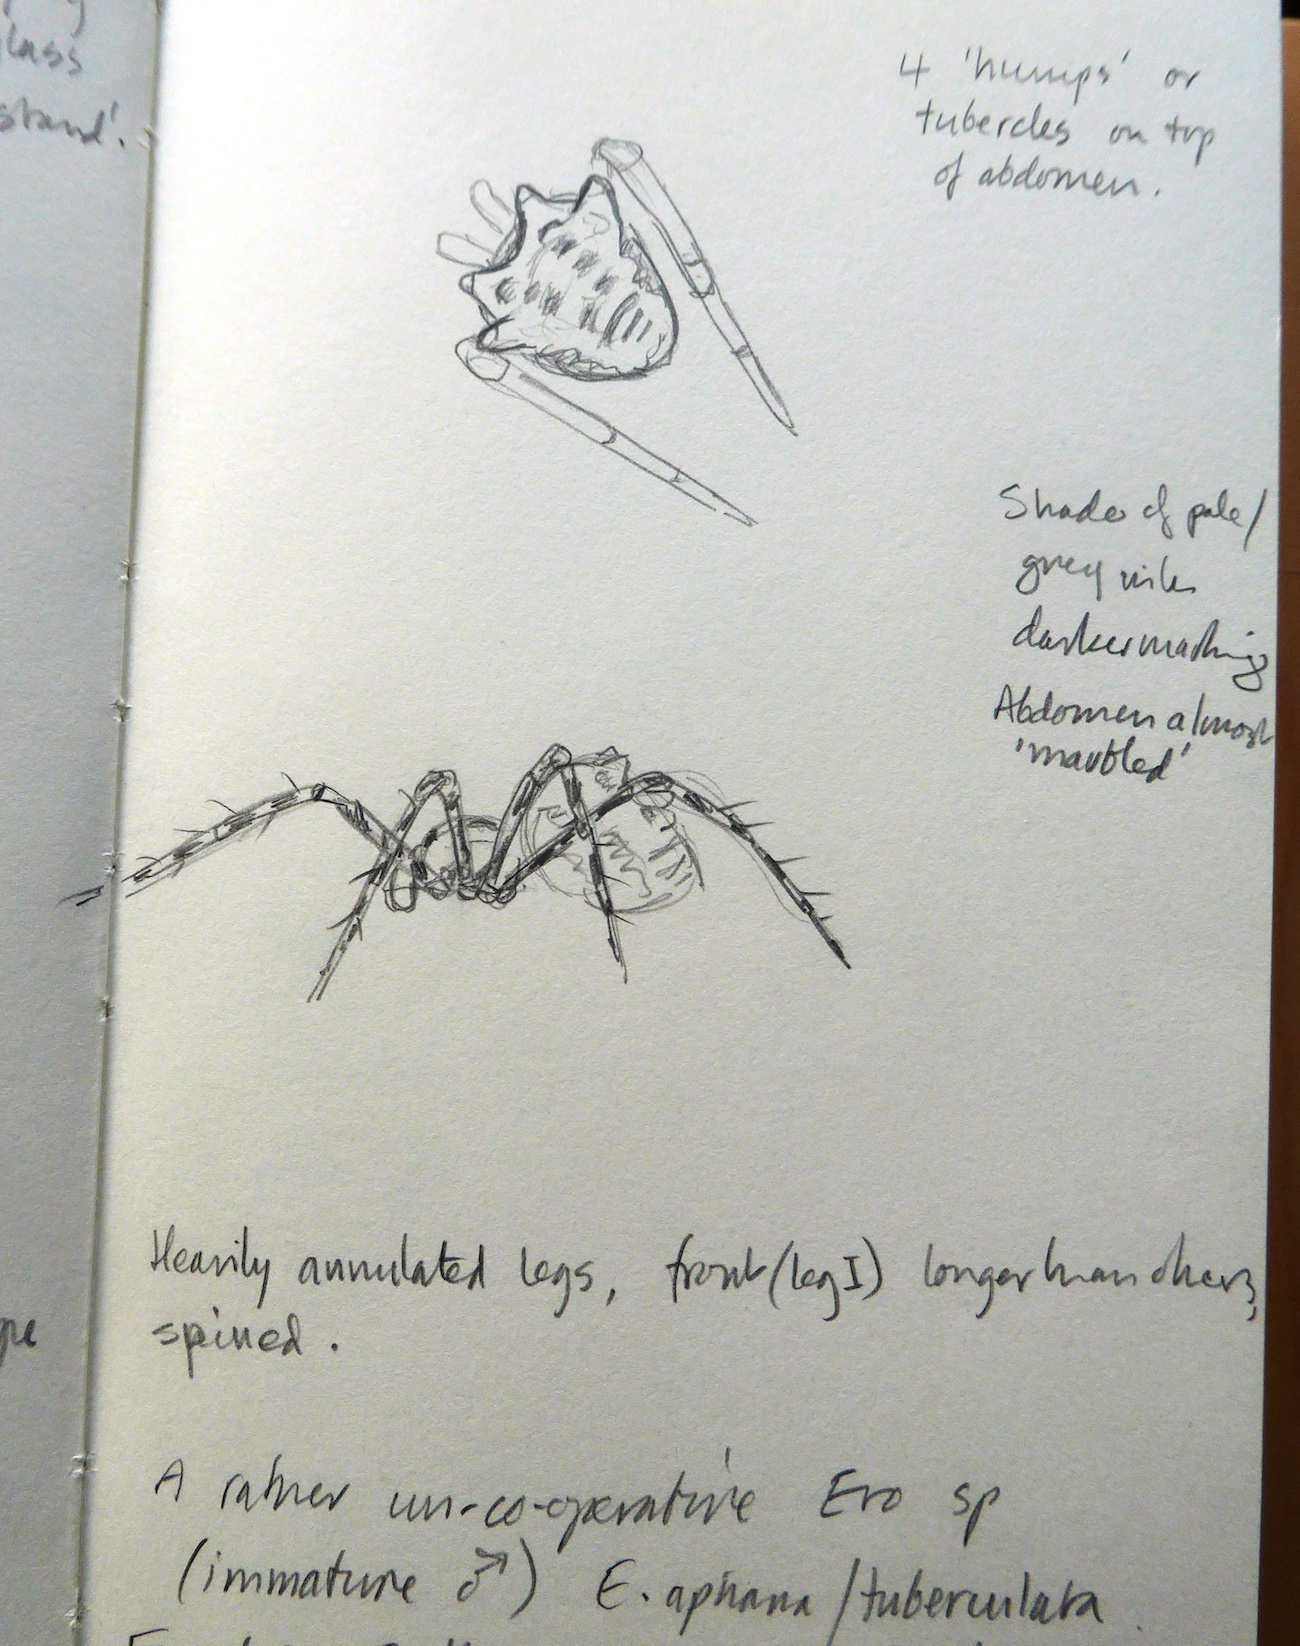 lass
stand'.
4 'humps' or
tubercles on top
of abdomen.
Shades of pale/
grey with
darker marking
Abdomen almost
'marbled'
Heavily annulated legs, front (leg I) longer than others,
spined.
A rather un-co-operative Ero sp
(immature ♂) E. aphana/tuberculata